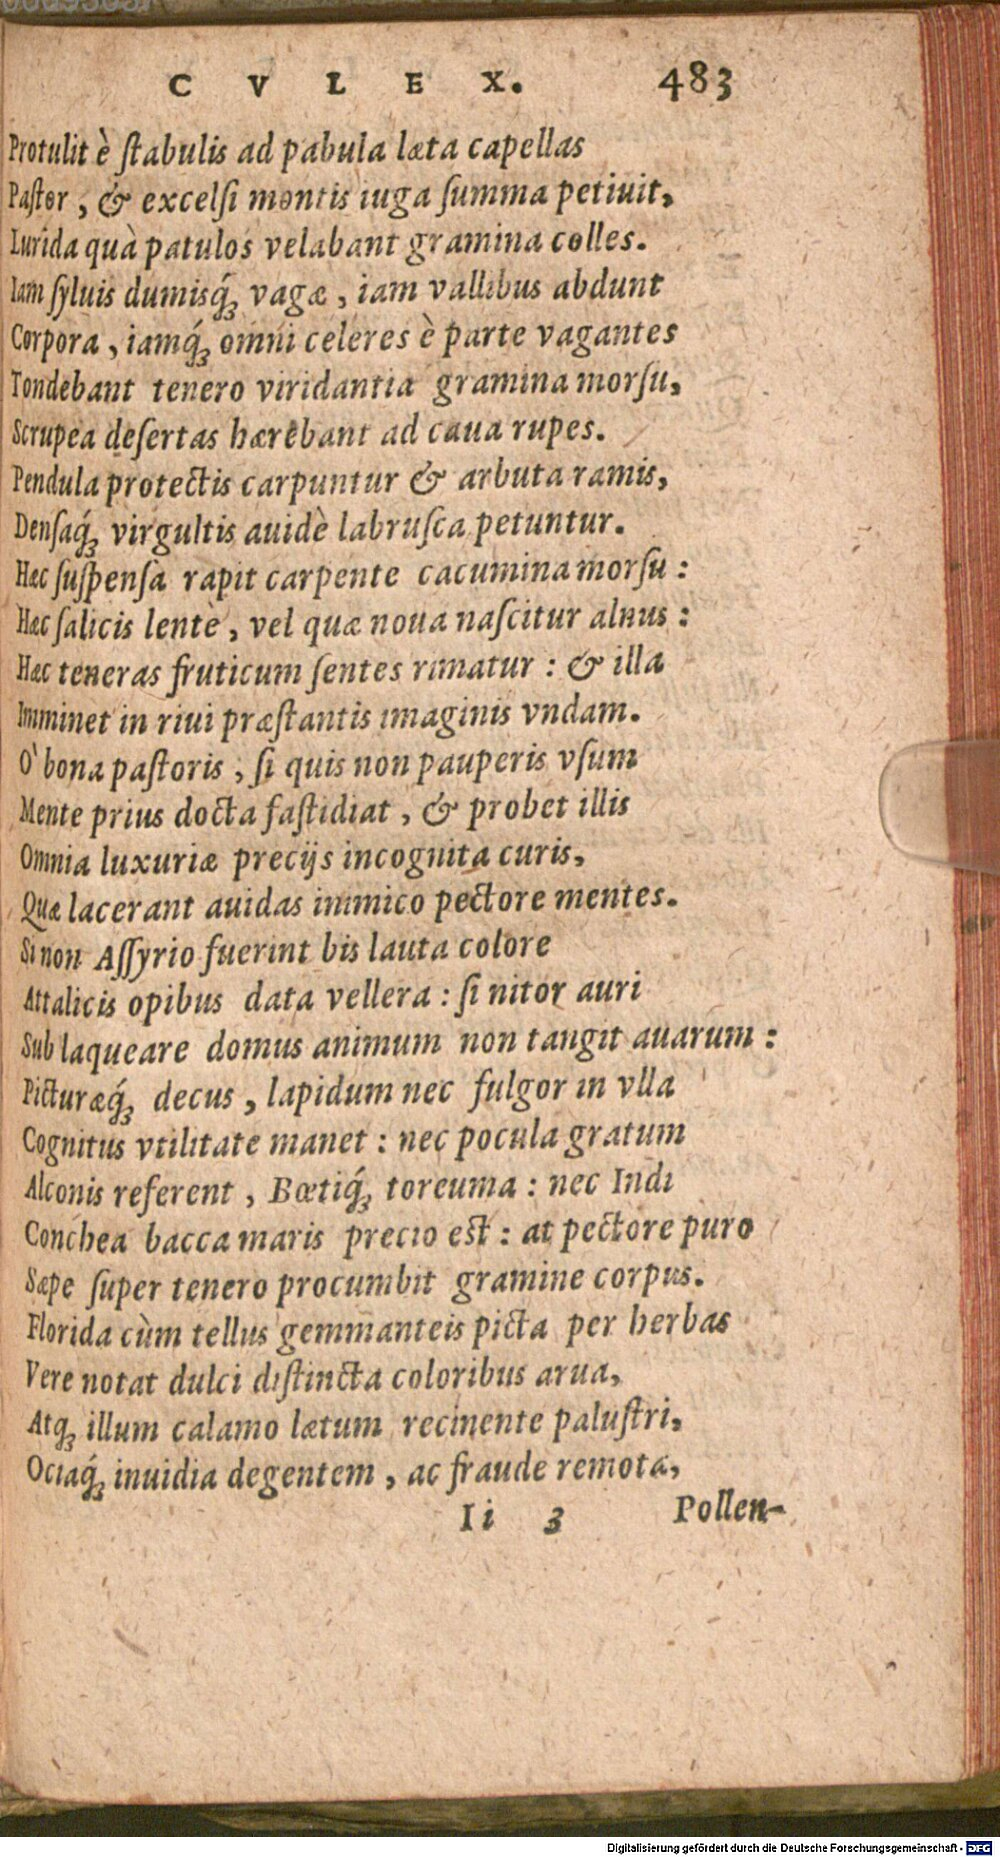 C V L E X. 483
Protulit è ſtabulis ad pabula læta capellas
Paſtor , & excelſi montis iuga ſumma petiuit,
Lurida quà patulos velabant gramina colles.
Iam ſyluis dumisq́ꝫ vagæ , iam vallibus abdunt
Corpora , iamq́ꝫ omni celeres è parte vagantes
Tondebant tenero viridantia gramina morſu,
Scrupea deſertas hærebant ad caua rupes.
Pendula protectis carpuntur & arbuta ramis,
Denſaq́ꝫ virgultis auidè labruſca petuntur.
Hæc ſuſpenſa rapit carpente cacumina morſu :
Hæc ſalicis lentè , vel quæ noua naſcitur alnus :
Hæc teneras fruticum ſentes rimatur : & illa
Imminet in riui præſtantis imaginis vndam.
O' bona paſtoris , ſi quis non pauperis vſum
Mente prius docta faſtidiat , & probet illis
Omnia luxuriæ precijs incognita curis,
Quæ lacerant auidas inimico pectore mentes.
Si non Aſſyrio fuerint bis lauta colore
Attalicis opibus data vellera : ſi nitor auri
Sub laqueare domus animum non tangit auarum :
Picturæq́ꝫ decus , lapidum nec fulgor in vlla
Cognitus vtilitate manet : nec pocula gratum
Alconis referent , Bœtiq́ꝫ toreuma : nec Indi
Conchea bacca maris precio eſt : at pectore puro
Sæpe ſuper tenero procumbit gramine corpus.
Florida cùm tellus gemmanteis picta per herbas
Vere notat dulci diſtincta coloribus arua,
Atqꝫ illum calamo lætum recinente paluſtri,
Ociaq́ꝫ inuidia degentem , ac fraude remota,
Ii 3 Pollen-
Digitalisierung gefördert durch die Deutsche Forschungsgemeinschaft - DFG